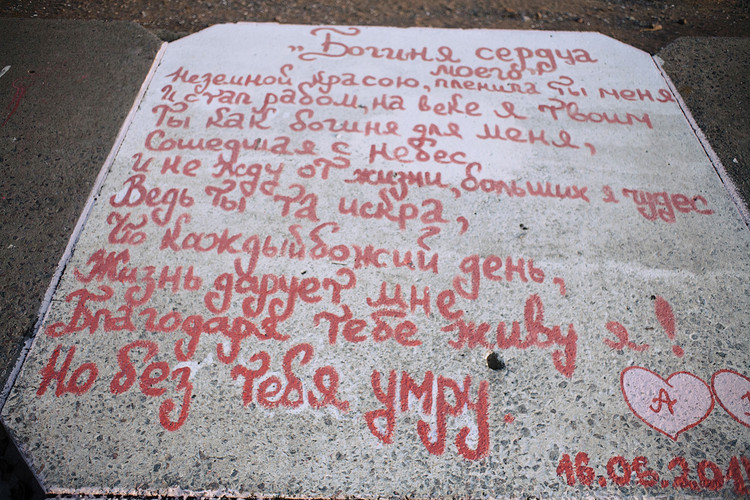 „Богиня сердца
моего"
Неземной красою, пленила ты меня
И стал рабом, на веке я твоим
Ты как богиня для меня,
Сошедшая с небес
И не жду от жизни, больших я чудес
Ведь ты та искра,
Что каждый божий день,
Жизнь дарует мне
Благодаря тебе живу я!
Но без тебя умру.
А
16.06.201